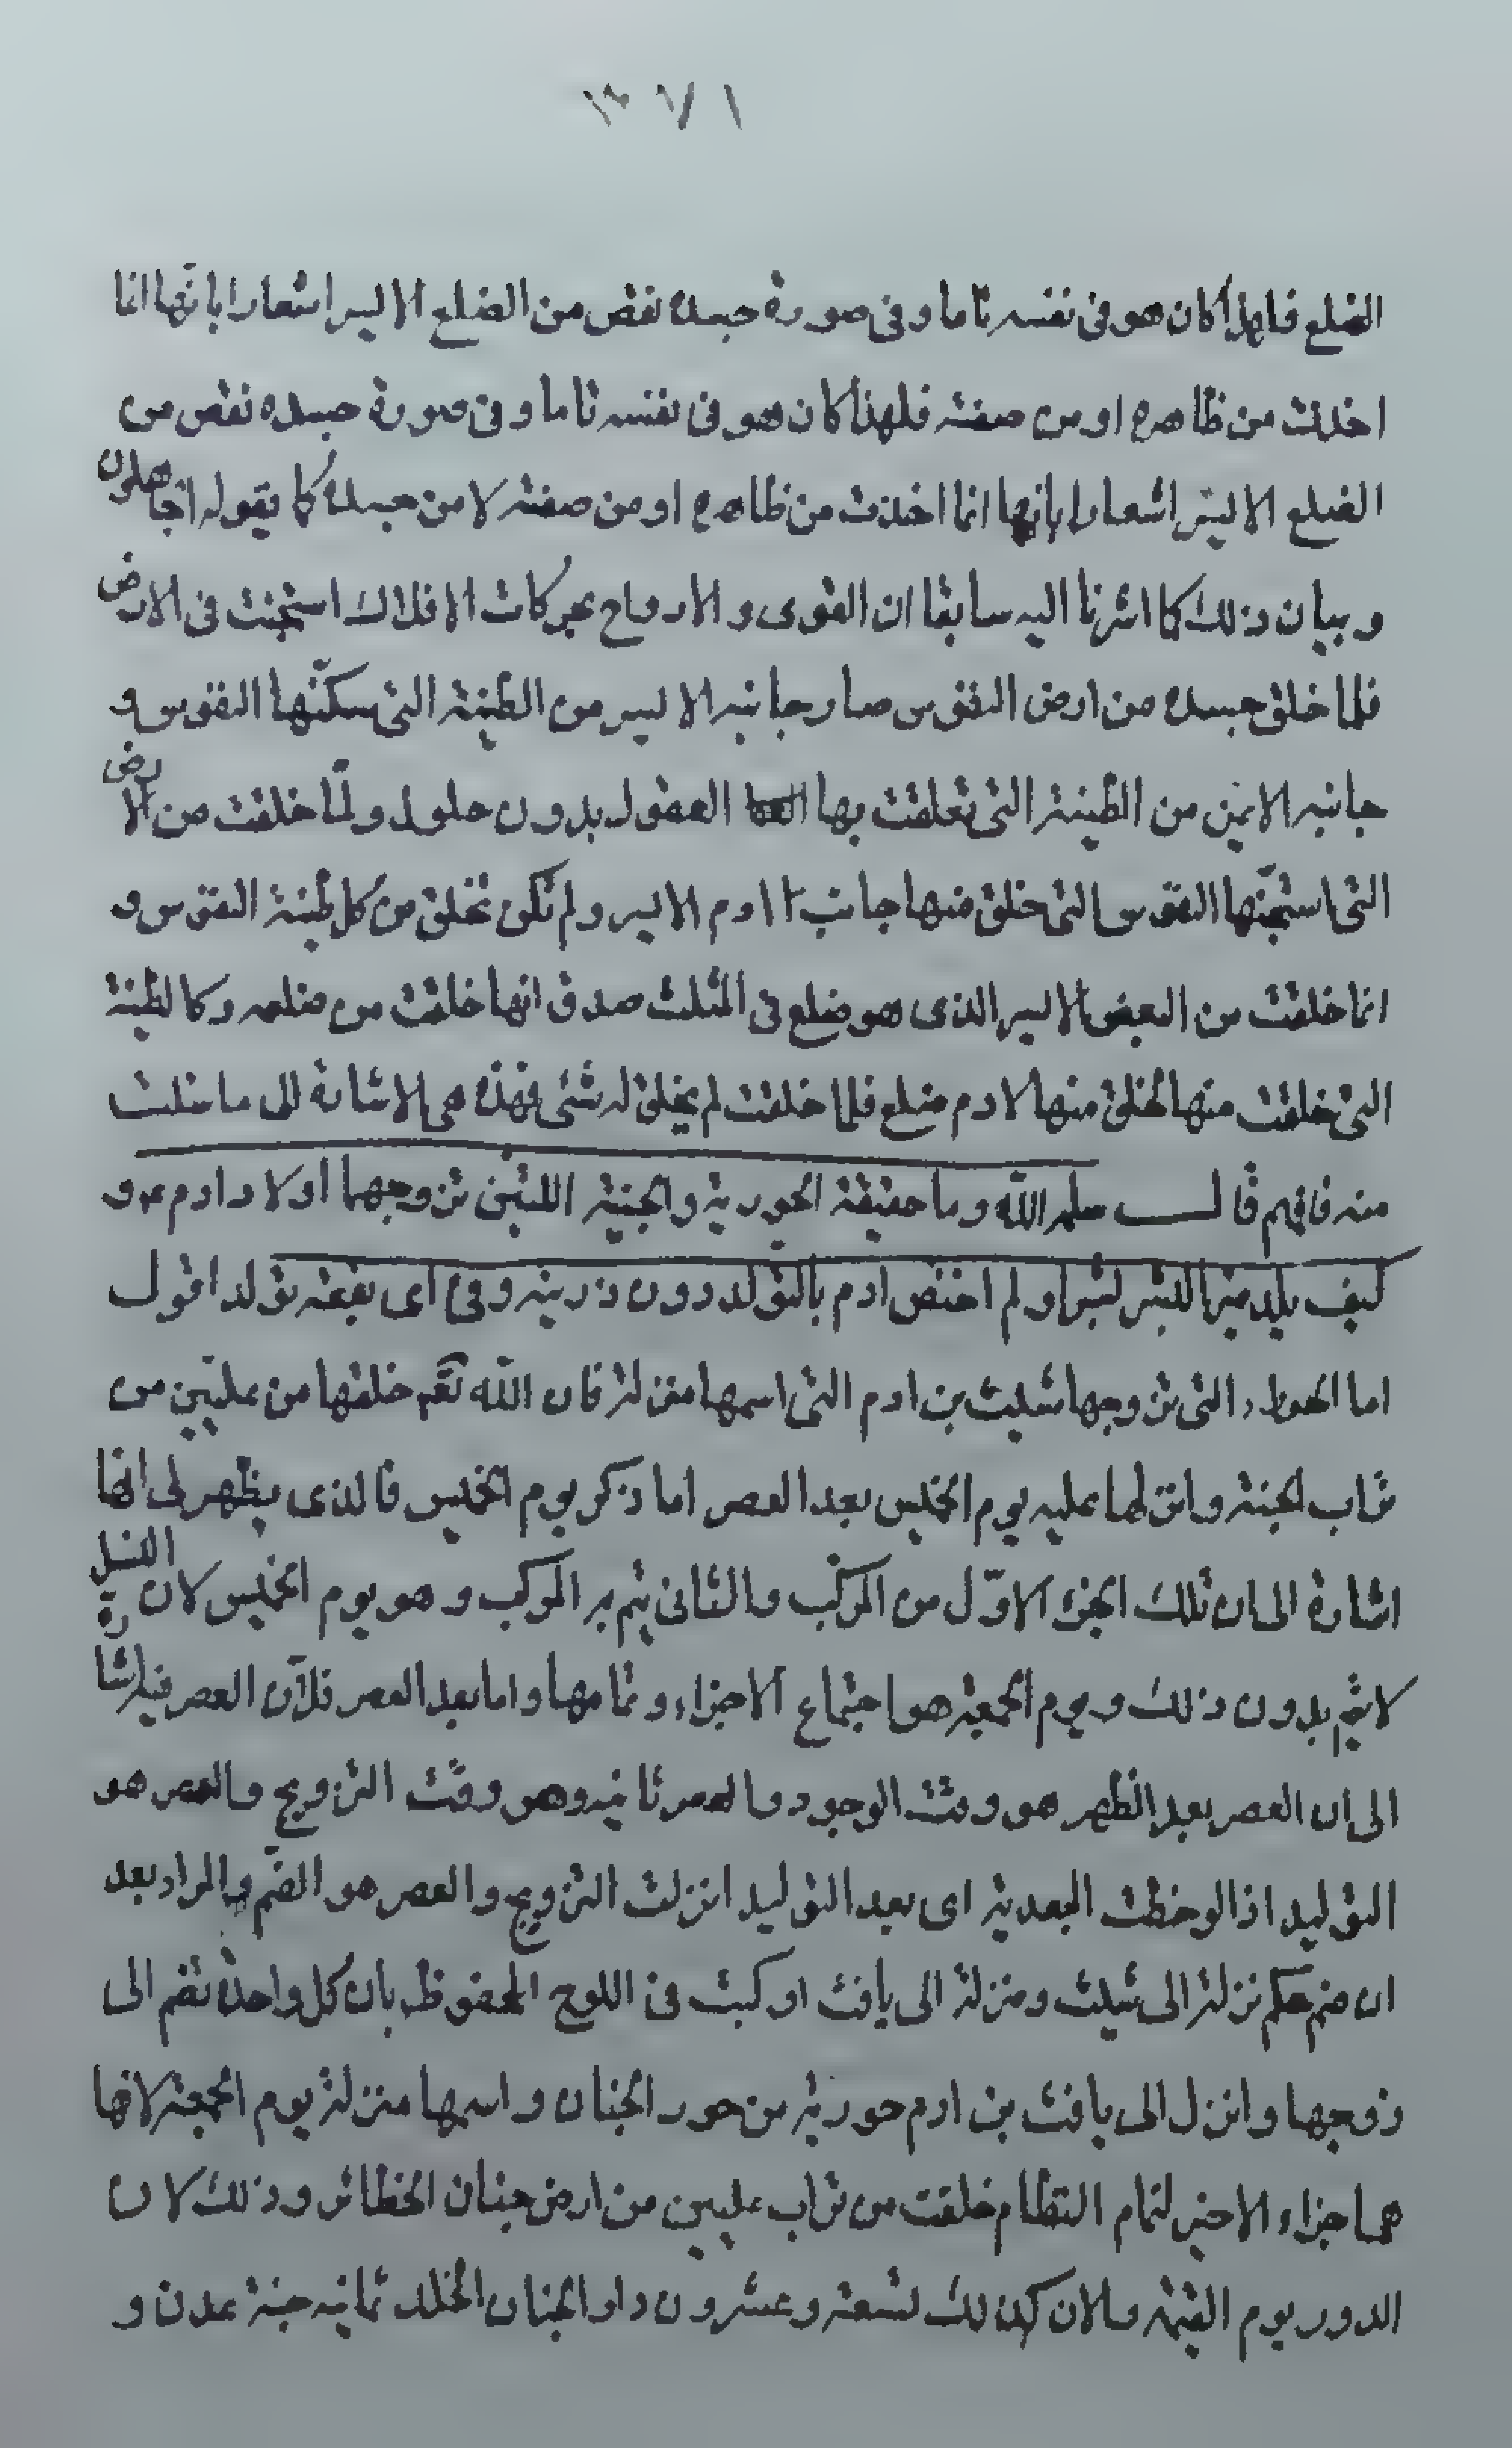 الضلع فلهذا كان هو في نفسه تاما وفي صورة جسده نقص من الضلع الايسر اشعارا بانها انما
اخذت من ظاهره او من صفته فلهذا كان هو في نفسه تاما وفي صورة جسده نقص من
الضلع الايسر اشعارا بانها انما اخذت من ظاهره او من صفته لا من جسده كما يقوله الجاهلون
وبيان ذلك كما اشرنا اليه سابقا ان القوى والارواح بحركات الافلاك استجنت في الارض
فلما خلق جسده من ارض النفوس صار جانبه الايسر من الطينة التي سكنتها النفوس و
جانبه الايمن من الطينة التي تعلقت بها العقول بدون حلول ولما خلقت من الارض
التي استجنتها النفوس التي خلق منها جانب ادم الايسر ولم تكن تخلق من كل طينة النفوس و
انما خلقت من البعض الايسر الذي هو ضلع في المثلث صدق انها خلقت من ضلعه وكالطينة
التي خلقت منها لخلق منها لادم ضلع فلما خلقت لم يخلق له شئ فهذه هي الاشارة الى ما سئلت
منه فافهم قال سلمه الله وما حقيقة الحورية والجنية اللتين تزوجهما اولاد ادم ع و
كيف يلد غير البشر بشرا ولم اختص ادم بالتولد دون ذريته وفي اي بقعة تولد اقول
اما الحوراء التي تزوجها شيث بن ادم التي اسمها منزلة فان الله تعم خلقها من عليين من
تراب الجنة وانزلها عليه يوم الخميس بعد العصر اما ذكر يوم الخميس فالذي يظهر لي انها
اشارة الى ان تلك الجزء الاول من المركب والثاني يتم به المركب وهو يوم الخميس لان النسل
لا يتم بدون ذلك ويوم الجمعة هو اجتماع الاجزاء وتمامها واما بعد العصر فلان العصر فيه اشارة
الى ان العصر بعد الظهر هو وقت الوجود والعصر ثانيه وهو وقت التزويج والعصر هو
التوليد اذا لوحظت البعدية اي بعد التوليد انزلت التزويج والعصر هو الضم والمراد بعد
ان ضم حكم نزلة الى شيث ومنزلة الى يافث او كبت في اللوح المحفوظ بان كل واحدة تضم الى
زوجها وانزل الى يافث بن ادم حورية من حور الجنان واسمها منزلة يوم الجمعة لانها
هما جزاء الاخير لتمام النظام خلقت من تراب عليين من ارض جنان الحظائر وذلك لان
الدور يوم القيمة والان كذلك تسعة وعشرون دار الجنان الخلد ثمانية جنة عدن و